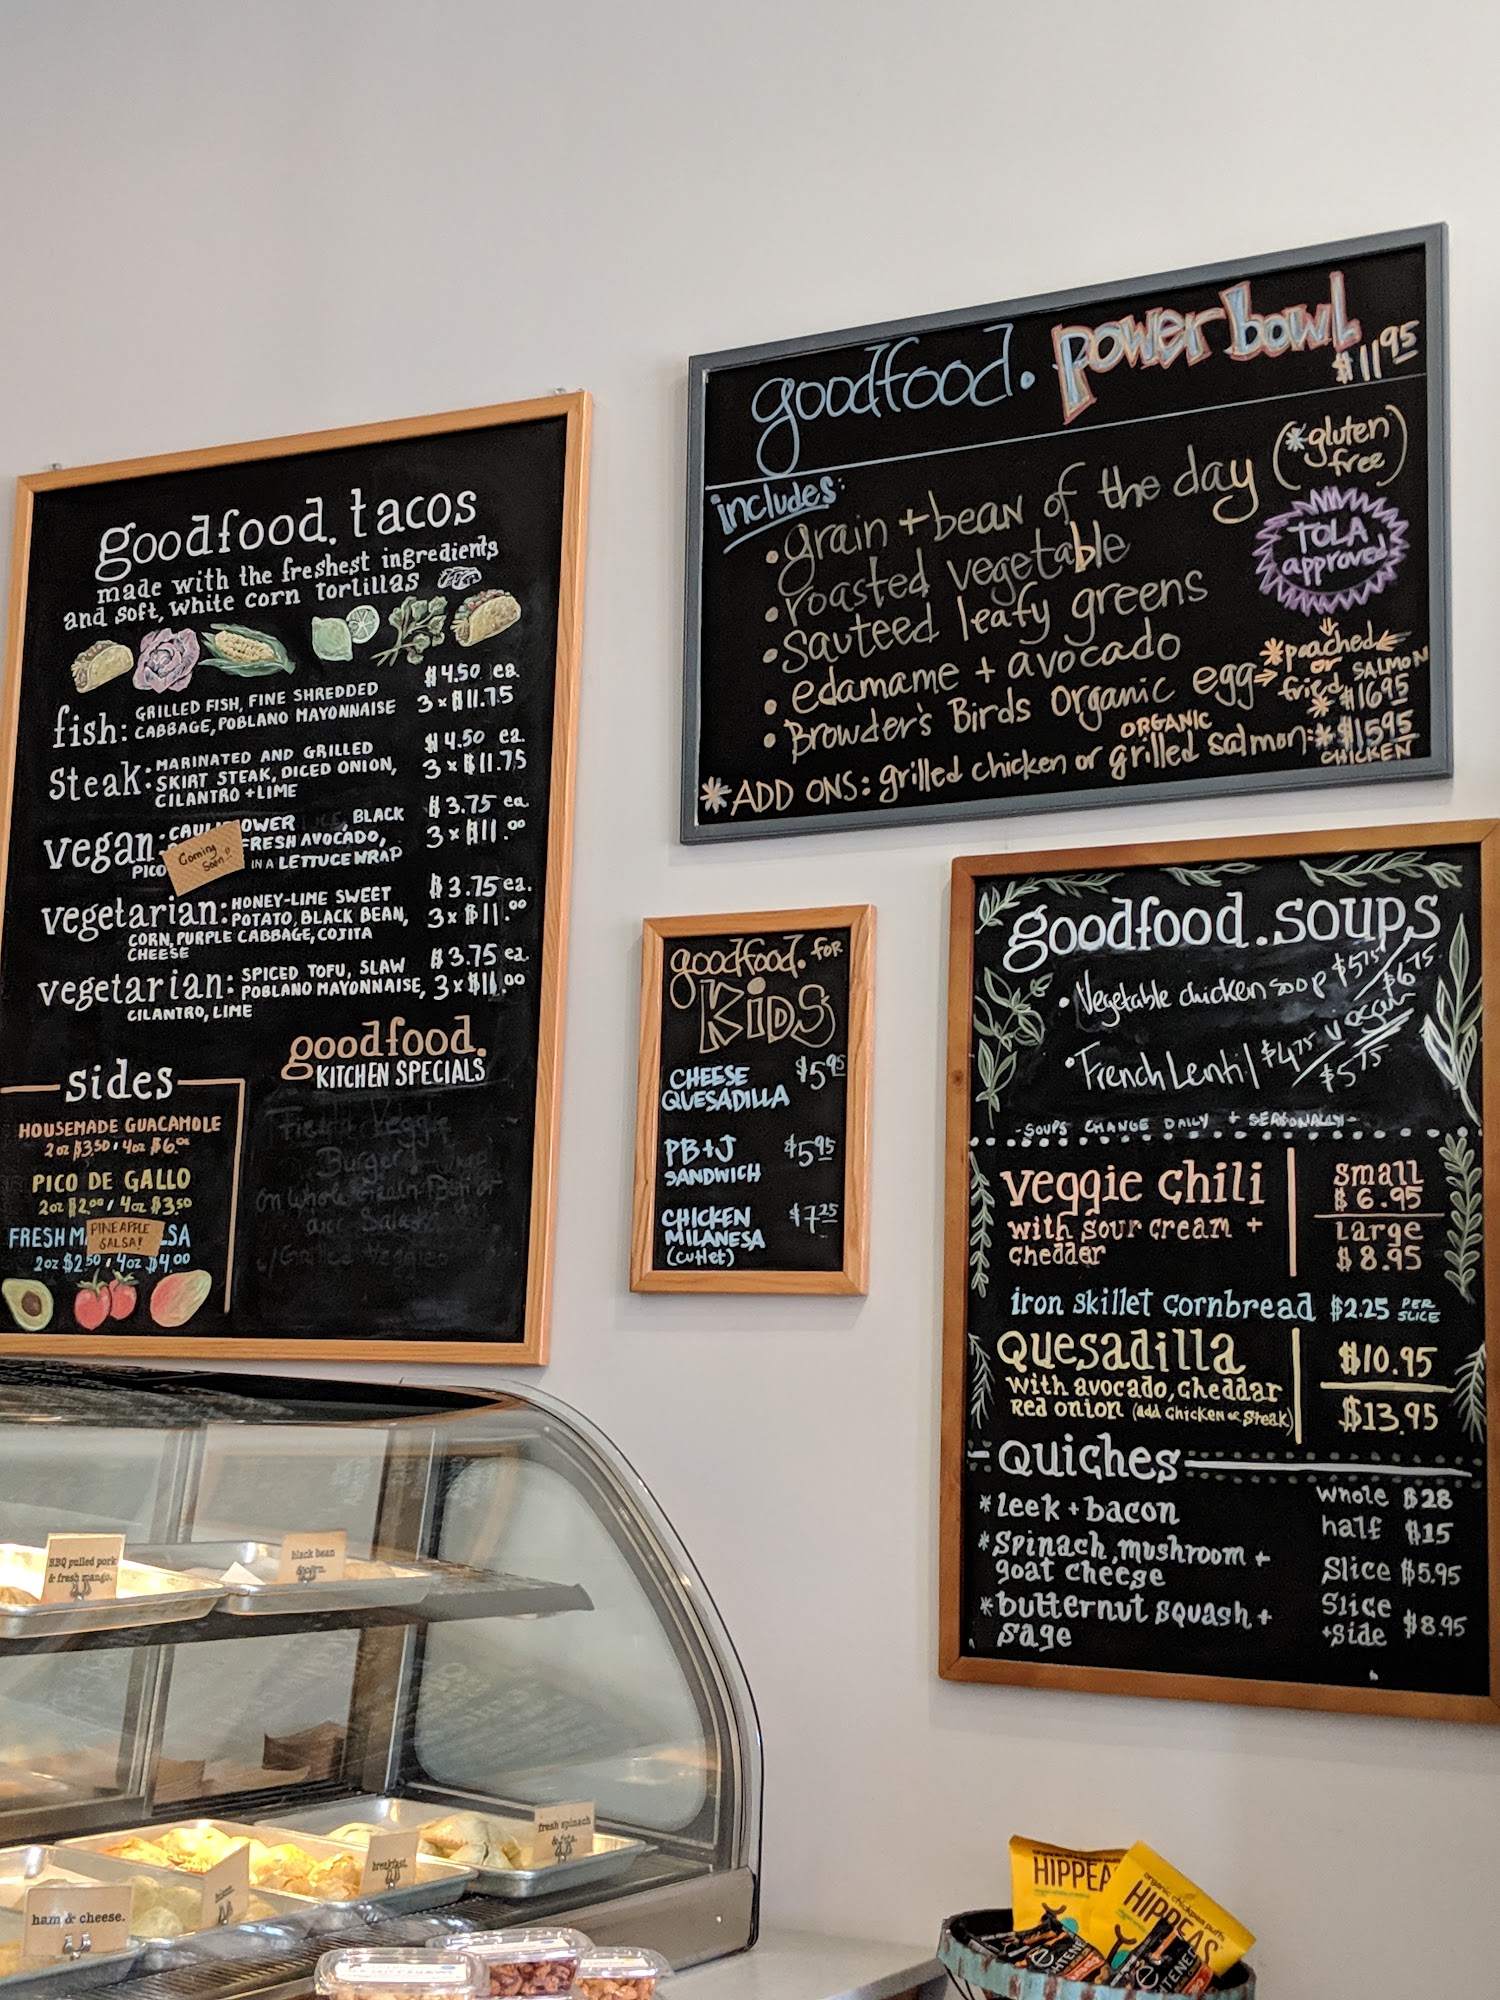 goodfood. tacos
made with the freshest ingredients
and soft, white corn tortillas
fish: GRILLED FISH, FINE SHREDDED
CABBAGE, POBLANO MAYONNAISE
$4.50 ea.
3 x $11.75
Steak: MARINATED AND GRILLED
SKIRT STEAK, DICED ONION,
CILANTRO + LIME
$4.50 ea.
3 x $11.75
vegan: BLACK
FRESH AVOCADO,
PICO IN A LETTUCE WRAP
Coming Soon!
$3.75 ea
3 x $11.00
vegetarian: HONEY-LIME SWEET
POTATO, BLACK BEAN,
CORN, PURPLE CABBAGE, COJITA
CHEESE
$3.75 ea.
3 x $11.00
vegetarian: SPICED TOFU, SLAW
POBLANO MAYONNAISE,
CILANTRO, LIME
$3.75 ea.
3 x $11.00
sides
HOUSEMADE GUACAMOLE
2oz $3.50, 4oz $6.00
PICO DE GALLO
2oz $2.00, 4oz $3.50
FRESH
PINEAPPLE
SALSA!
2oz $2.50, 4oz $4.00
goodfood.
KITCHEN SPECIALS
Veggie
Burger
on whole Grain
w/Grilled Veggies
goodfood. power bowl
$11.95
includes:
• grain + bean of the day (*gluten
free)
• roasted vegetable
• sauteed leafy greens
• edamame + avocado
• Browder's Birds Organic egg
TOLA
approved
*poached
or
fried
SALMON
*$16.95
*ADD ONS: grilled chicken or grilled salmon: *$15.95
ORGANIC
CHICKEN
goodfood. FOR
KiDS
CHEESE
QUESADILLA $5.95
PB+J
SANDWICH $5.95
CHICKEN
MILANESA $7.25
(cutlet)
goodfood. soups
• Vegetable chicken soup $5.75
$6.75
• French Lentil $4.75 vegan
$5.75
- SOUPS CHANGE DAILY + SEASONALLY -
veggie chili
with sour cream +
cheddar
Small
$6.95
Large
$8.95
iron skillet cornbread $2.25 PER
SLICE
Quesadilla
with avocado, cheddar
Red onion (add chicken or steak)
$10.95
$13.95
Quiches
*leek + bacon
*Spinach, mushroom +
goat cheese
*butternut squash +
sage
whole $28
half $15
Slice $5.95
Slice
+Side $8.95
BBQ pulled pork
& fresh mango.
black bean
fresh spinach
breakfast.
ham & cheese.
HIPPEAS
organic chickpea puffs
HIPPEAS